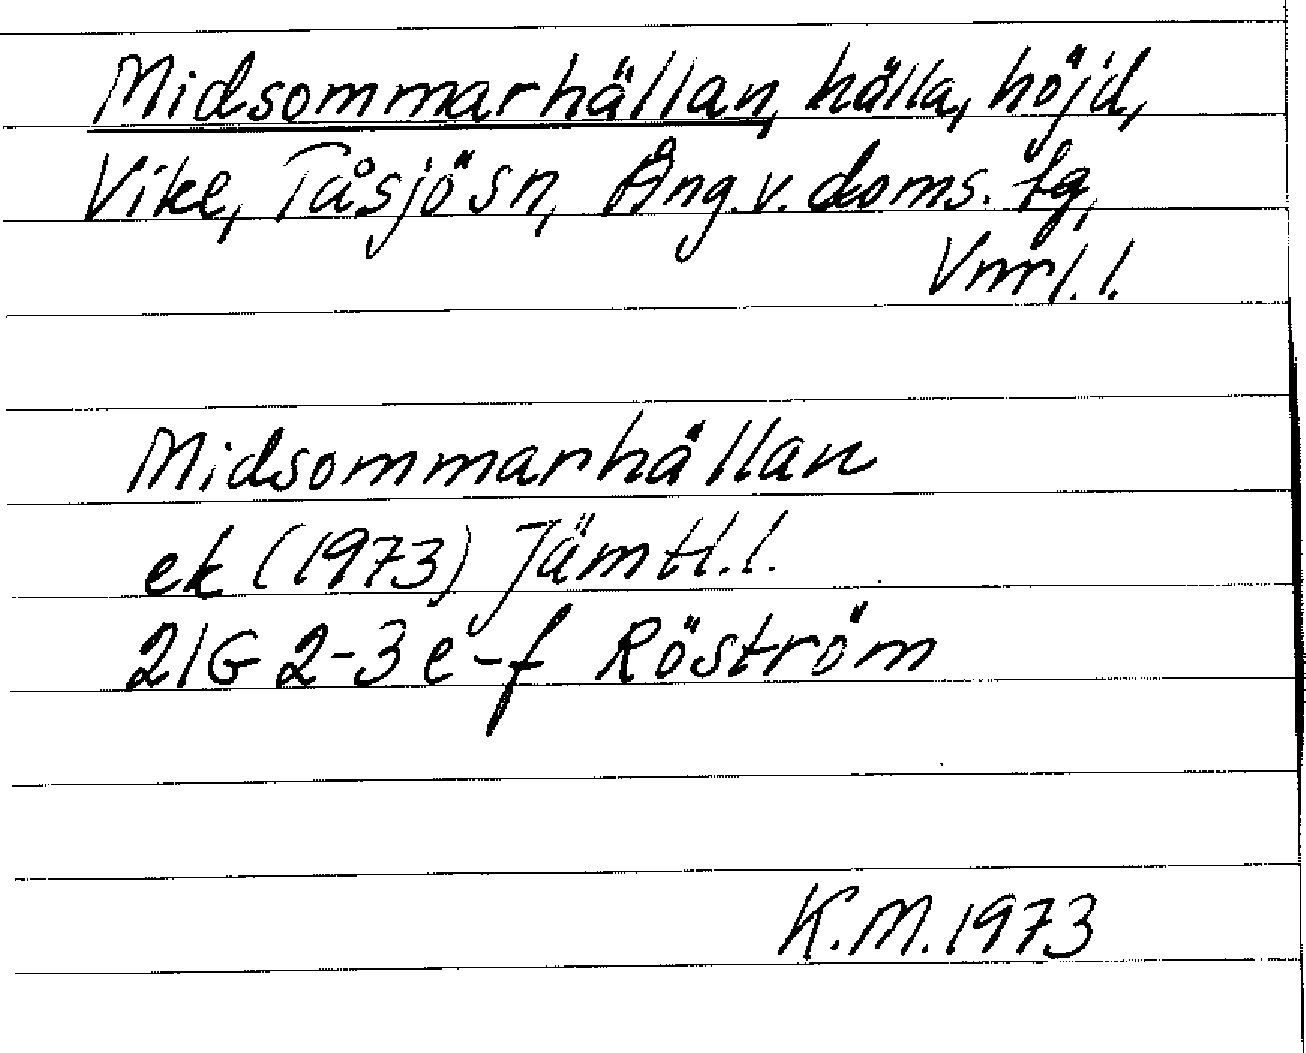 Midsommarhällan, hälla, höjd,
Vike, Tåsjö sn, Ång. v. doms. tg,
Vnrl. l.
Midsommarhällan
ek (1973) Jämtl. l.
21G 2-3 e-f Röström
K.M. 1973